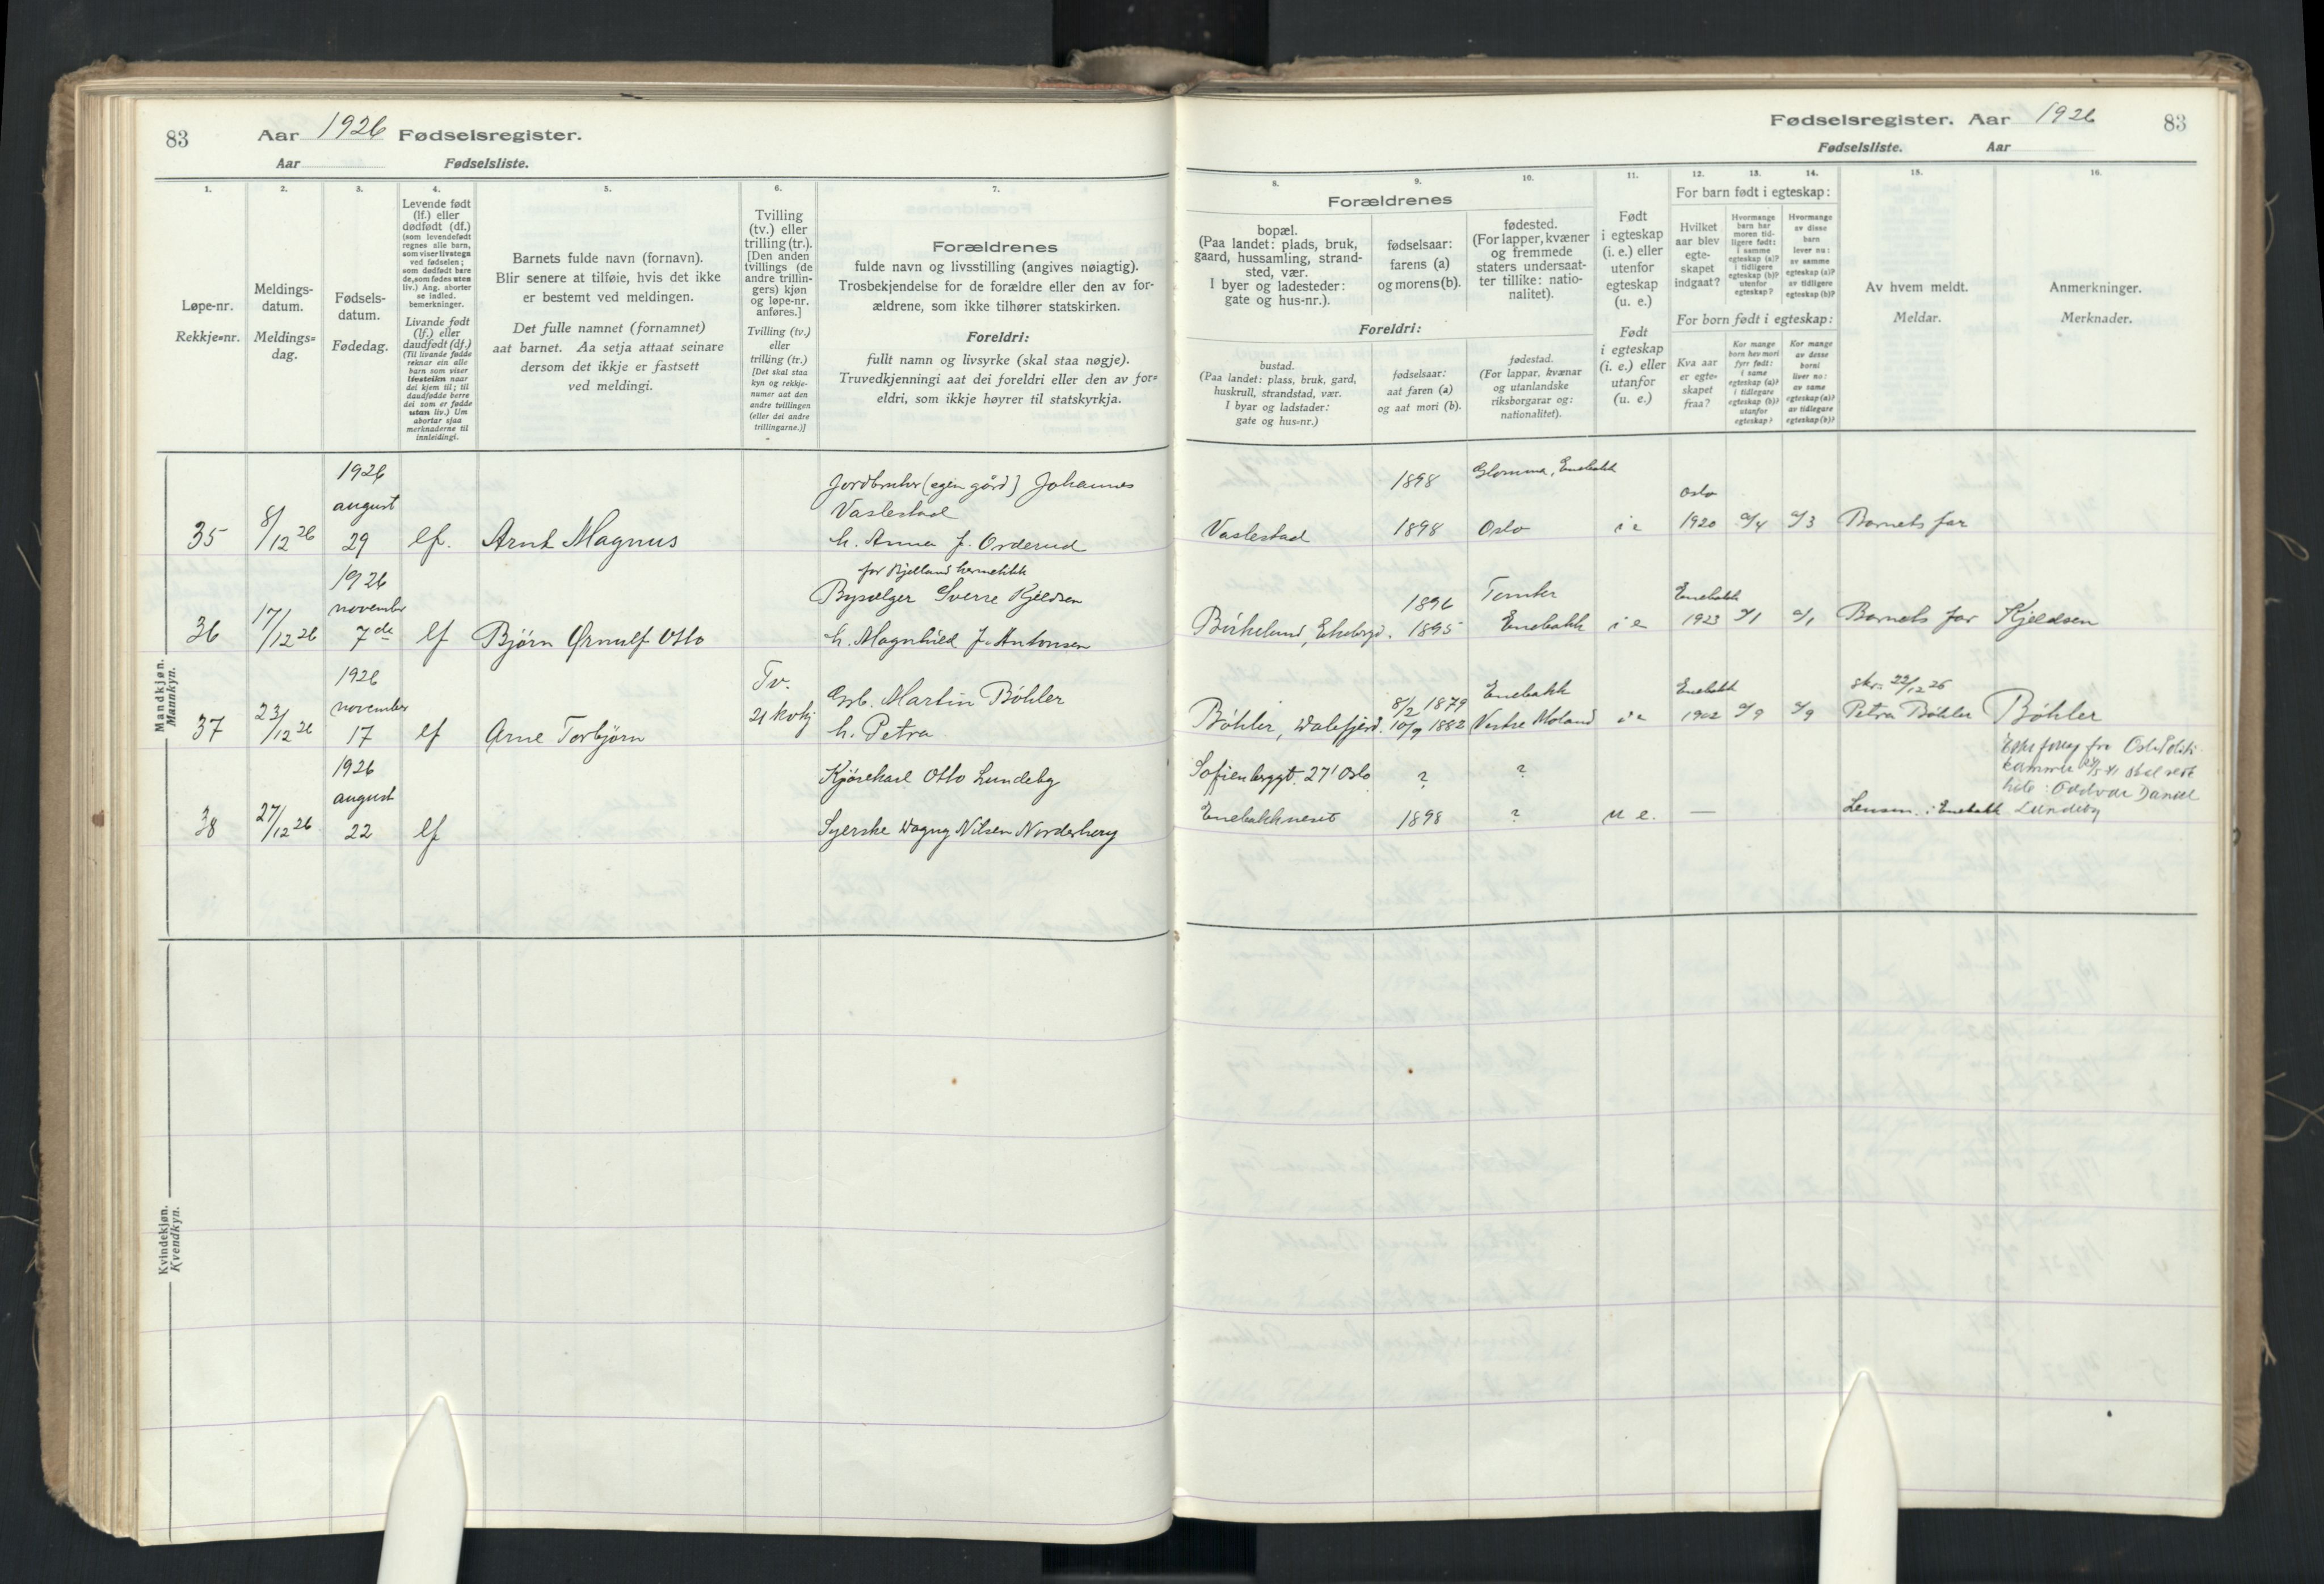 83 Aar 1926 Fødselsregister.
Aar Fødselsliste.
1. 2. 3. 4. 5. 6. 7.
Løpe-nr.
Rekkje=nr.
Meldings-
datum.
Meldings=
dag.
Fødsels-
datum.
Fødedag.
Levende født
(lf.) eller
dødfødt (df.)
(som levendefødt
regnes alle barn,
som viser livstegn
ved fødselen;
som dødfødt bare
de, som fødes uten
liv.) Ang. aborter
se indled.
bemerkninger.
Livande født
(lf.) eller
daudfødt (df.)
(Til livande fødde
reknar ein alle
barn som viser
livsteikn naar
dei kjem til; til
daudfødde berre
dei som er fødde
utan liv.) Um
abortar sjaa
merknaderne til
innleidingi.
Barnets fulde navn (fornavn).
Blir senere at tilføie, hvis det ikke
er bestemt ved meldingen.
Det fulle namnet (fornamnet)
aat barnet. Aa setja attaat seinare
dersom det ikkje er fastsett
ved meldingi.
Tvilling
(tv.) eller
trilling (tr.).
[Den anden
tvillings (de
andre trillin-
gers) kjøn
og løpe-nr.
anføres.]
Tvilling (tv.)
eller
trilling (tr.)
[Det skal staa
kyn og rekkje-
numer aat den
andre tvillingen
(eller dei andre
trillingarne.)]
Forældrenes
fulde navn og livsstilling (angives nøiagtig).
Trosbekjendelse for de forældre eller den av for-
ældrene, som ikke tilhører statskirken.
Foreldri:
fullt namn og livsyrke (skal staa nøgje).
Truvedkjenningi aat dei foreldri eller den av for=
eldri, som ikkje høyrer til statskyrkja.
Mandkjøn.
Mankyn.
35 8/12 26 1926 august 29 lf. Arnt Magnus
Jordbruker (egen gård) Johannes
Vaslestad
h. Anna f. Orderud
36 17/12 26 1926 november 7de lf Bjørn Ørnulf Otto
for Bjelland hermetikk
Bysælger Sverre Kjeldsen
h. Magnhild f. Antonsen
37 23/12 26 1926 november 17 lf Arne Torbjørn
Tv.
21 kvkj
Gsb. Martin Bøhler
h. Petra
38 27/12 26 1926 august 22 lf
Kjørekarl Otto Lundeby
Syerske Dagny Nilsen Norderherg
Kvindekjøn.
Kvendkyn.
Fødselsregister. Aar 1926 83
Fødselsliste. Aar
8. 9. 10. 11. 12. 13. 14. 15. 16.
Forældrenes
bopæl.
(Paa landet: plads, bruk,
gaard, hussamling, strand-
sted, vær.
I byer og ladesteder:
gate og hus-nr.).
fødselsaar:
farens (a)
og morens (b).
fødested.
(For lapper, kvæner
og fremmede
staters undersaat-
ter tillike: natio-
nalitet).
Foreldri:
bustad.
(Paa landet: plass, bruk, gard,
huskrull, strandstad, vær.
I byar og ladstader:
gate og hus-nr.)
fødselsaar:
aat faren (a)
og aat mori (b).
fødestad.
(For lappar, kvænar
og utanlandske
riksborgarar og:
nationalitet).
Født
i egteskap
(i. e.) eller
utenfor
egteskap
(u. e.)
Født
i egteskap
(i. e.) eller
utanfor
(u. e.)
For barn født i egteskap:
Hvilket
aar blev
egte-
skapet
indgaat?
Hvormange
barn har
moren tid-
ligere født:
i samme
egteskap (a)?
i tidligere
egteskap (b)?
utenfor
egteskap?
Hvormange
av disse
barn
lever nu:
av samme
egteskap (a)?
av tidligere
egteskap (b)?
For born født i egteskap:
Kva aar
er egte-
skapet
fraa?
Kor mange
born hev mori
fyrr født:
i same
egteskap (a)?
i tidlegare
egteskap (b)?
utanfor
egteskap?
Kor mange
av desse
borni
liver no:
av same
egteskap (a)?
av tidlegare
egteskap (b)?
Av hvem meldt.
Meldar.
Anmerkninger.
Merknader.
1898 Glomma, Enebakk
Oslo
Vaslestad 1898 Oslo i e 1920 a/4 a/3 Barnets far
1896 Tomter Enebakk
Birkelund, Ekebergd. 1895 Enebakk i e 1923 a/1 a/1 Barnets far Kjeldsen
8/2 1879 Enebakk Enebakk skr. 22/12 26
Bøhler, Dalefjerd. 10/9 1882 Vestre Moland i e 1902 a/9 a/9 Petra Bøhler Bøhler
Sofienberggt. 27' Oslo ? ?
Enebakkneset 1898 ? u e. — Lensm. i Enebakk
fra Oslo Politi-
kammer
hete: Oddvar Daniel
Lundeby